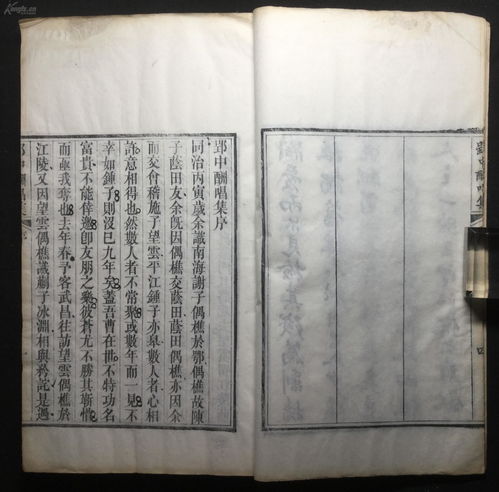 郢中酬唱集序
同治丙寅歲余識南海謝子偶樵於鄂偶樵故陳
子蔭田友余既因偶樵交蔭田蔭田偶樵亦因余
而交會稽施子望雲平江鍾子亦泉數人者心相
許意相得也然數人者不常聚或數年而一見不
幸如鍾子則沒已九年矣蓋吾曹在世不特功名
富貴不能倖邀卽友朋之聚彼蒼尤不勝其靳惜
而虐我奪也去年春予客武昌往訪望雲偶樵於
江陵又因望雲偶樵識嗣子冰淵相與矜詫是遇
郢中酬唱集
序
郢中酬唱集
四